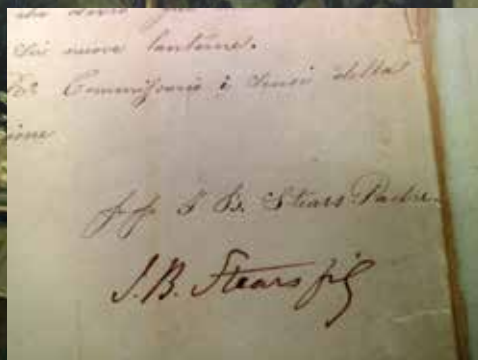 di nuove lanterne.
Commissario i sensi della
ione
pp J. B. Stears Padre
J. B. Stears fig